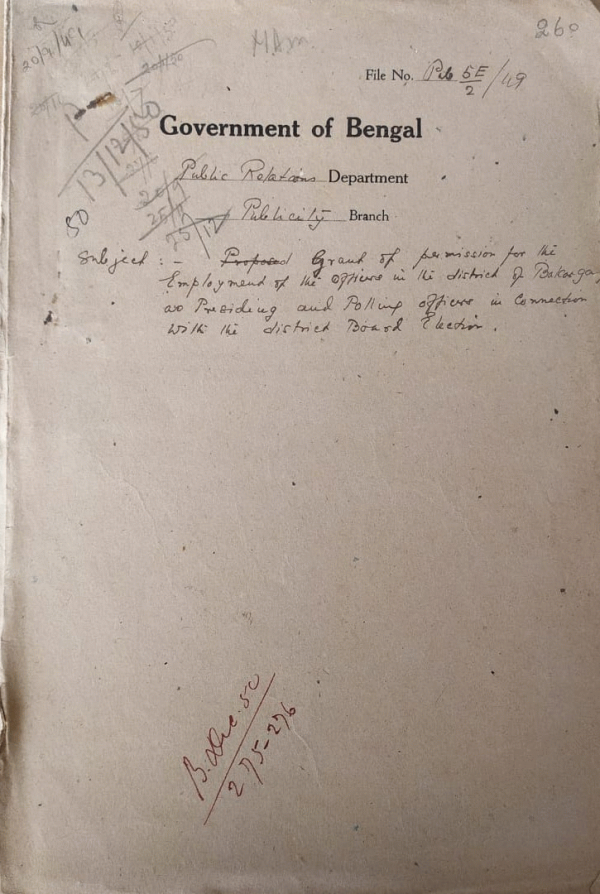 260
MAm.
File No. Pub 5E/2/49
20/9/49
20/1/50
Government of Bengal
13/12/50
Public Relations Department
Publicity Branch
50
25/12
Subject :- Proposed Grant of permission for the
Employment of the officers in the district of Bakarganj
as Presiding and Polling officers in connection
with the district Board Election.
B. Dec. 50
275-276